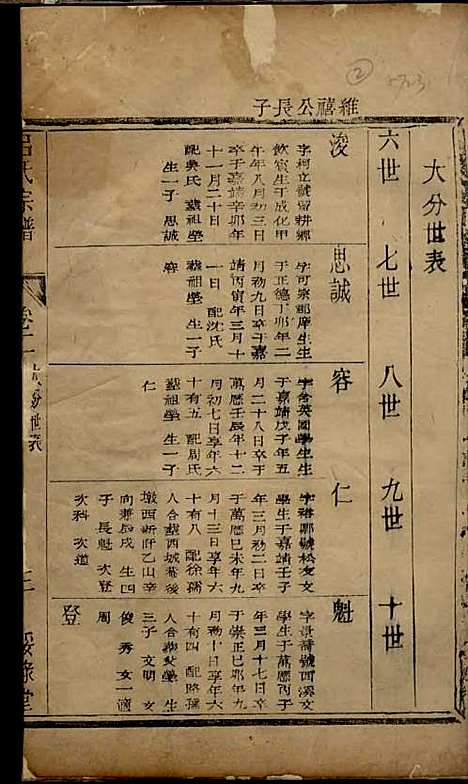 維禧公長子
大分世表
六世
七世
八世
九世
十世
浚
字柯立號留耕鄉
飲賓生于成化甲
午年八月初三日
卒于嘉靖辛卯年
十一月二十日
配吳氏 葬祖塋
生一子 思誠
思誠
字可宗郡庠生生
于正德丁卯年二
月初九日卒于嘉
靖丙寅年三月十
一日 配沈氏
葬祖塋 生一子
容
容
字含英國學生生
于嘉靖戊子年五
月二十八日卒于
萬歷壬辰年十二
月初七日享年六
十有五 配周氏
葬祖塋 生一子
仁
仁
字裕卿號松友文
學生于嘉靖壬子
年三月初二日卒
于萬歷己未年九
月十三日享年六
十有八 配徐孺
人合葬西城菴後
墩西新阡乙山辛
向兼辰戌 生四
子 長魁 次登
次科 次道
魁
字景喬號西溪文
學生于萬歷丙子
年三月十七日卒
于崇正己卯年九
月初十日享年六
十有四 配路孺
人合葬父塋 生
三子 文明 文
俊 秀 女一適
周
登
呂氏宗譜
卷二
大分世表